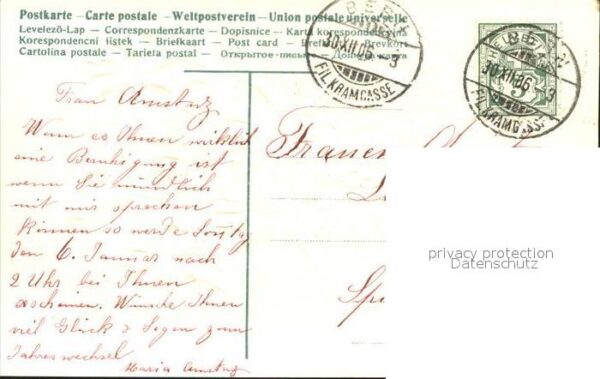 Postkarte - Carte postale - Weltpostverein - Union postale universelle
Levelező-Lap — Correspondenzkarte — Dopisnice — Karta korespondencyjna
Korespondencni listek — Briefkaart — Post card — Brefkort — Brevkort
Cartolina postal — Tarieta postal — Открытое письмо — Дописна карта
BERN
30.XII.06. - 3
FIL. KRAMGASSE
BERN
30.XII.06. - 3
FIL. KRAMGASSE
Frau Amstutz
Wenn es Ihnen wirklich
eine Beruhigung ist
wenn Sie mündlich
mit mir sprechen
können so werde Sonntag
den 6. Januar nach
2 Uhr bei Ihnen
erscheinen. Wünsche Ihnen
viel Glück & Segen zum
Jahreswechsel
Maria Amstutz
Frauen
privacy protection
Datenschutz